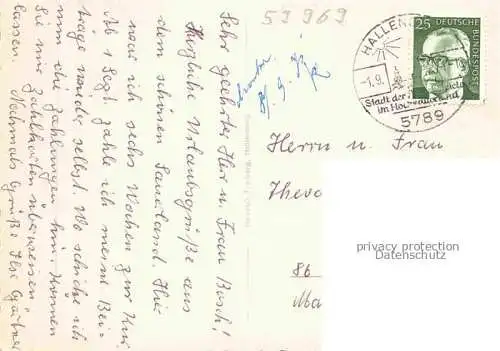 59969
Sehr geehrter Herr u. Frau Busch!
Herzliche Urlaubsgrüße aus
dem schönen Sauerland. Hier
war ich sechs Wochen zur Kur.
Ab 1 Sept. zahle ich meine Bei-
träge wieder selbst. Wo schicke ich
nun die Zahlungen hin. Können
Sie mir Zahlkarten überweisen
lassen. Nochmals Grüße Ilse Gärtner
HALLEN
-1.9.
Stadt der
im Hochsauerland
5789
25
DEUTSCHE
BUNDESPOST
Herrn u. Frau
Theo
86
Ma
privacy protection
Datenschutz